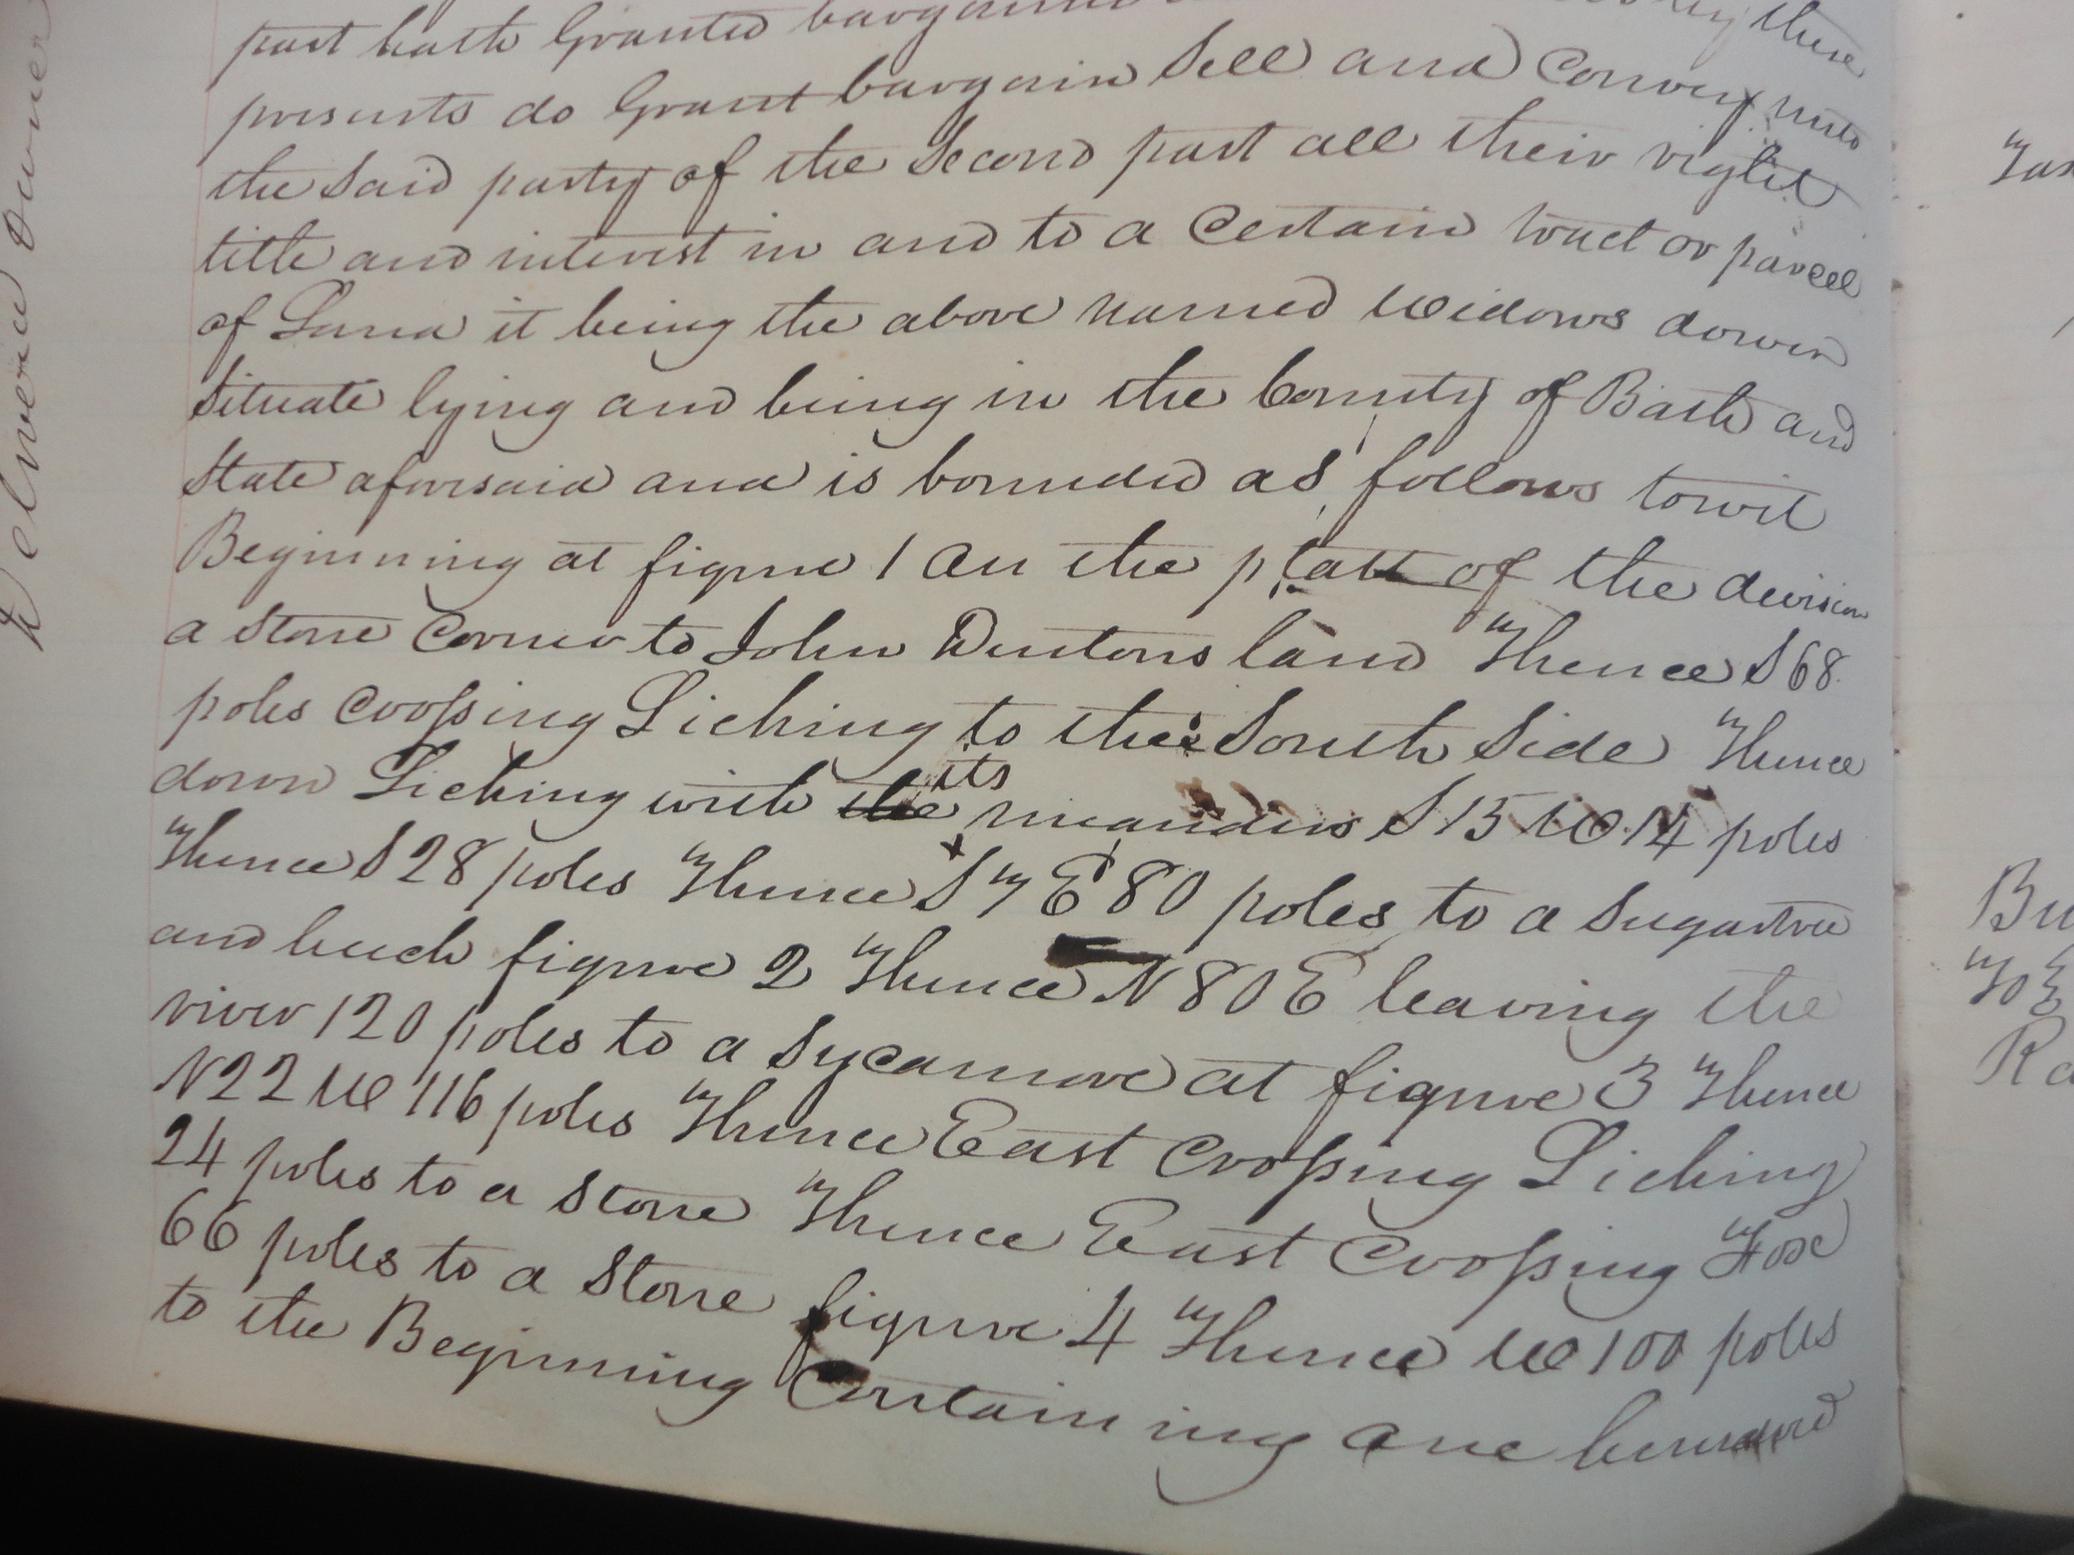 part hath Granted bargained these
presents do Grant bargain Sell and Convey unto
the Said party of the Second part all their right
title and interest in and to a Certain tract or parcel
of Land it being the above named Widows dower
Situate lying and being in the County of Bath and
State aforesaid and is bounded as follows towit
Beginning at figure 1 on the platt of the devision
a Stone Corner to John Dentons land Thence S 68
poles Crossing Licking to the South Side Thence
down Licking with the its meanders S 15 W 14 poles
Thence S 28 poles Thence S 7 E 80 poles to a Sugartree
and buch figure 2 Thence N 80 E leaving the
river 120 poles to a Sycamore at figure 3 Thence
N 22 W 116 poles Thence East Crossing Licking
24 poles to a Stone Thence East Crossing Fox
66 poles to a Stone figure 4 Thence W 100 poles
to the Beginning Containing one hundred
Delivered Owner
Bu
To E
Ra